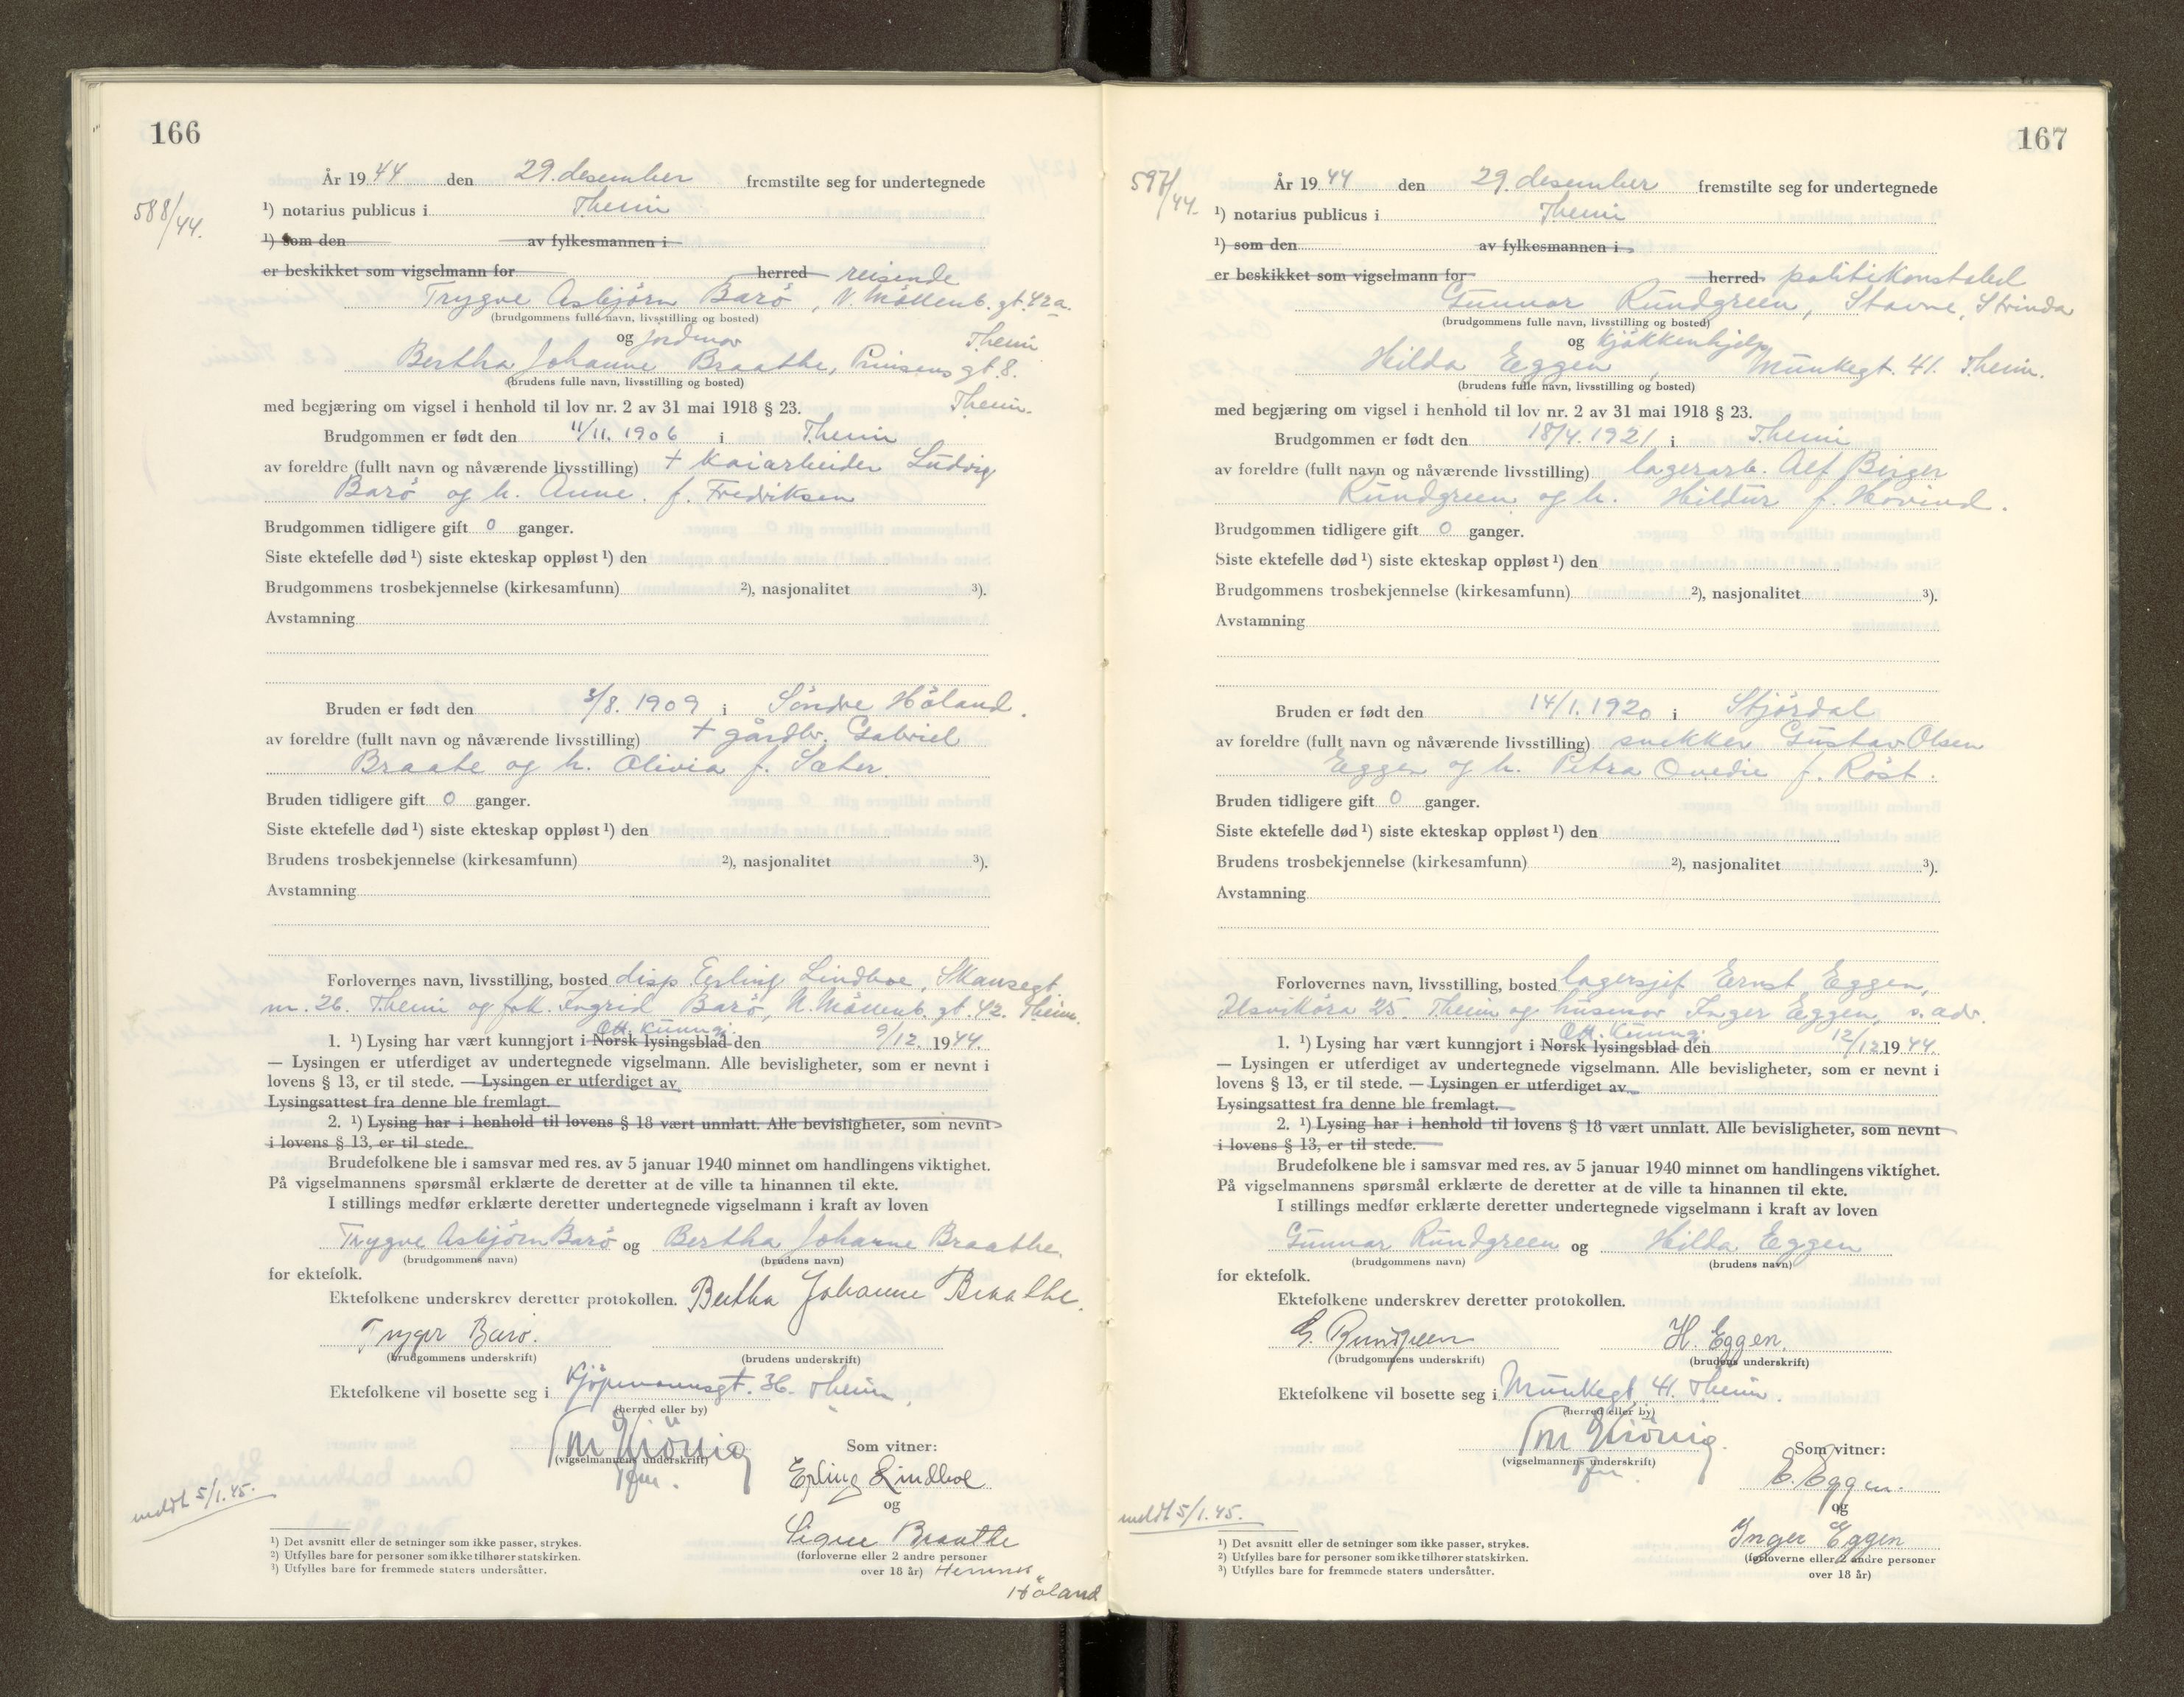 166
588/44.
År 19 44 den 29. desember fremstilte seg for undertegnede
¹) notarius publicus i Theim
¹) som den av fylkesmannen i
er beskikket som vigselmann for herred reisende
Trygve Asbjörn Barö, N. Möllenb. gt. 42a.
(brudgommens fulle navn, livsstilling og bosted)
Theim
og jordmor
Bertha Johanne Braathe, Prinsens gt. 8.
(brudens fulle navn, livsstilling og bosted)
Theim.
med begjæring om vigsel i henhold til lov nr. 2 av 31 mai 1918 § 23.
Brudgommen er født den 11/11. 1906 i Theim
av foreldre (fullt navn og nåværende livsstilling) + kaiarbeider Ludvig
Barö og h. Anne f. Fredriksen
Brudgommen tidligere gift 0 ganger.
Siste ektefelle død ¹) siste ekteskap oppløst ¹) den
Brudgommens trosbekjennelse (kirkesamfunn) ²), nasjonalitet ³).
Avstamning
Bruden er født den 3/8. 1909 i Söndre Höland.
av foreldre (fullt navn og nåværende livsstilling) + gårdbr. Gabriel
Braate og h. Olivia f. Sæter.
Bruden tidligere gift 0 ganger.
Siste ektefelle død ¹) siste ekteskap oppløst ¹) den
Brudens trosbekjennelse (kirkesamfunn) ²), nasjonalitet ³).
Avstamning
Forlovernes navn, livsstilling, bosted disp. Erling Lindboe, Skansegt.
nr. 26. Theim og frk. Ingrid Barö, N. Möllenb. gt. 42. Theim.
Off. kunngj.
1. ¹) Lysing har vært kunngjort i Norsk lysingsblad den 9/12. 1944.
— Lysingen er utferdiget av undertegnede vigselmann. Alle bevisligheter, som er nevnt i
lovens § 13, er til stede. — Lysingen er utferdiget av
Lysingsattest fra denne ble fremlagt.
2. ¹) Lysing har i henhold til lovens § 18 vært unnlatt. Alle bevisligheter, som nevnt
i lovens § 13, er til stede.
Brudefolkene ble i samsvar med res. av 5 januar 1940 minnet om handlingens viktighet.
På vigselmannens spørsmål erklærte de deretter at de ville ta hinannen til ekte.
I stillings medfør erklærte deretter undertegnede vigselmann i kraft av loven
Trygve Asbjörn Barö og Bertha Johanne Braathe.
(brudgommens navn) (brudens navn)
for ektefolk.
Ektefolkene underskrev deretter protokollen. Bertha Johanne Braathe.
Trygve Barö.
(brudgommens underskrift) (brudens underskrift)
Ektefolkene vil bosette seg i Kjöpmannsgt. 36. Theim.
(herred eller by)
Som vitner:
(vigselmannens underskrift)
Erling Lindboe
og
meldt 5/1.45.
Signe Braathe
(forloverne eller 2 andre personer
over 18 år) Hemnes
Höland
¹) Det avsnitt eller de setninger som ikke passer, strykes.
²) Utfylles bare for personer som ikke tilhører statskirken.
³) Utfylles bare for fremmede staters undersåtter.
167
597/44.
År 19 44 den 29. desember fremstilte seg for undertegnede
¹) notarius publicus i Theim
¹) som den av fylkesmannen i
er beskikket som vigselmann for herred politikonstabel
Gunnar Rundgreen, Stavne, Strinda
(brudgommens fulle navn, livsstilling og bosted)
og kjökkenhjelp
Hilda Eggen, Munkegt. 41. Theim.
(brudens fulle navn, livsstilling og bosted)
med begjæring om vigsel i henhold til lov nr. 2 av 31 mai 1918 § 23.
Brudgommen er født den 18/4. 1921 i Theim
av foreldre (fullt navn og nåværende livsstilling) lagerarb. Alf Birger
Rundgreen og h. Hildur f. Hovind.
Brudgommen tidligere gift 0 ganger.
Siste ektefelle død ¹) siste ekteskap oppløst ¹) den
Brudgommens trosbekjennelse (kirkesamfunn) ²), nasjonalitet ³).
Avstamning
Bruden er født den 14/1. 1920 i Stjördal
av foreldre (fullt navn og nåværende livsstilling) snekker Gustav Olsen
Eggen og h. Petra Ovedie f. Röst.
Bruden tidligere gift 0 ganger.
Siste ektefelle død ¹) siste ekteskap oppløst ¹) den
Brudens trosbekjennelse (kirkesamfunn) ²), nasjonalitet ³).
Avstamning
Forlovernes navn, livsstilling, bosted lagersjef Ernst Eggen,
Ilsviköra 25. Theim og husmor Inger Eggen, s. adr.
Off. kunngj.
1. ¹) Lysing har vært kunngjort i Norsk lysingsblad den 12/12 1944.
— Lysingen er utferdiget av undertegnede vigselmann. Alle bevisligheter, som er nevnt i
lovens § 13, er til stede. — Lysingen er utferdiget av
Lysingsattest fra denne ble fremlagt.
2. ¹) Lysing har i henhold til lovens § 18 vært unnlatt. Alle bevisligheter, som nevnt
i lovens § 13, er til stede.
Brudefolkene ble i samsvar med res. av 5 januar 1940 minnet om handlingens viktighet.
På vigselmannens spørsmål erklærte de deretter at de ville ta hinannen til ekte.
I stillings medfør erklærte deretter undertegnede vigselmann i kraft av loven
Gunnar Rundgreen og Hilda Eggen
(brudgommens navn) (brudens navn)
for ektefolk.
Ektefolkene underskrev deretter protokollen.
G. Rundgreen H. Eggen.
(brudgommens underskrift) (brudens underskrift)
Ektefolkene vil bosette seg i Munkegt. 41. Theim.
(herred eller by)
Som vitner:
(vigselmannens underskrift)
E. Eggen.
og
meldt 5/1.45.
Inger Eggen
(forloverne eller 2 andre personer
over 18 år)
¹) Det avsnitt eller de setninger som ikke passer, strykes.
²) Utfylles bare for personer som ikke tilhører statskirken.
³) Utfylles bare for fremmede staters undersåtter.